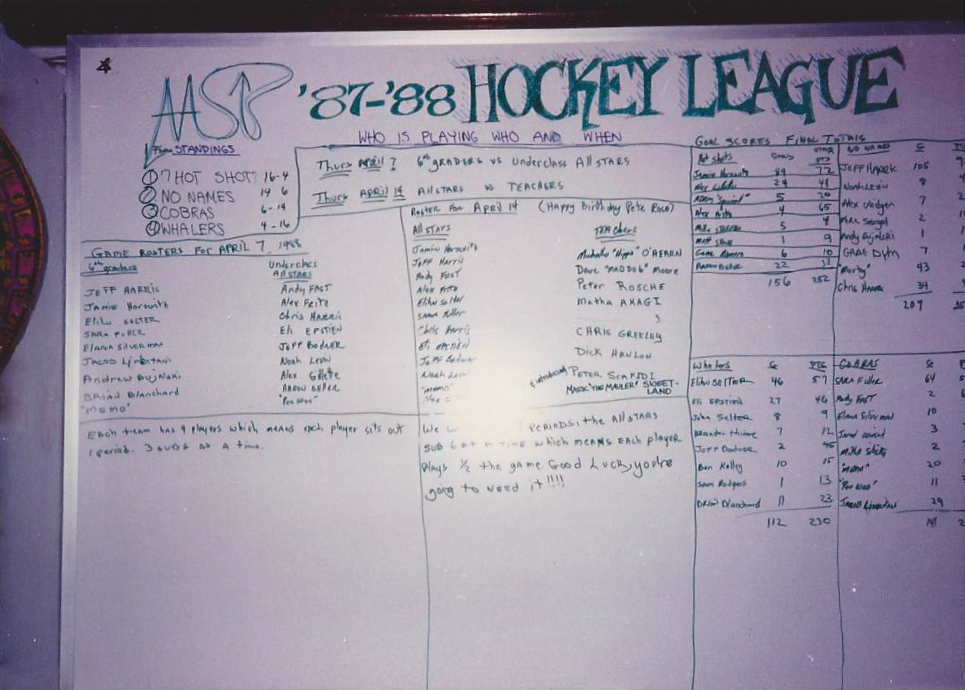 AASP '87-'88 HOCKEY LEAGUE
WHO IS PLAYING WHO AND WHEN
STANDINGS
① 7 HOT SHOT 16-4
② NO NAMES 14 6
③ COBRAS 6-14
④ WHALERS 4-16
Thurs April 7 6th graders vs Underclass All stars
Thurs APRIL 14 All stars vs TEACHERS
GAME ROSTERS FOR APRIL 7, 1988
6th graders
JEFF HARRIS
Jamie Horowitz
Elihu SELTER
SARA FULLER
ELANA SILVERMAN
JACOB
Andrew Bujalski
BRIAN Blanchard
"MEMO"
Underclass
All STARS
Andy FAST
Alex Fritz
Chris Harris
Eli EPSTIEN
JEFF BODNER
Noah Levin
Alex Gillette
AARON
"Pee Wee"
Each team has 9 players which means each player sits out
1 period. 3 subs at a time.
Roster For April 14 (Happy Birthday Pete Rose)
All STARS
Jamie Horowitz
Jeff Harris
Andy FAST
Alex Fritz
Elihu Selter
Chris Harris
Eli EPSTIEN
Jeff Bodner
Noah Levin
"memo"
TEAChers
Michelle "Hips" O'HEARN
Dave "MADDOG" Moore
Peter ROSCHE
Matha AKAGI
CHRIS GREELEY
DICK HANLON
PETER SCAFIDI
MARK "THE MAULER" SWEET-
LAND
We PERIODS: the All STARS
SUB 6 at a time which means each player
plays ½ the game Good Luck, you're
going to need it!!!!
GOAL SCORES FINAL TOTALS
Hot shots Goals PTS
Jamie Horowitz 89 72
24 41
5
Alex Fritz 4 65
4
5
1 9
6 10
22
156 252
NO NAMES G
105
Noah Levin 8
Alex 7
2
Andy Bujalski 1
7
"Morty" 43
Chris Harris 34
207
Whalers G PTS
Elihu SELTER 46 57
Eli EPSTIEN 27 46
John Selter 8 9
7 12
Jeff Bodner 2
Ben Kelley 10 15
Sam Rodgers 1 13
Brian Blanchard 11 23
112 230
COBRAS G
SARA FULLER 64
Andy FAST 2
Elana Silverman 10
3
2
"memo" 20
"Pee Wee" 11
29
141